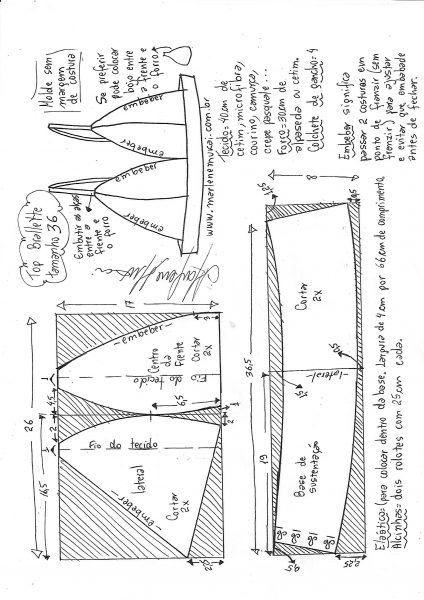 Top Brallette
tamanho 36
Molde sem
margem
de costura
Se preferir
pode colocar
bojo entre
a frente e
o forro
Embutir as alças
entre a
frente e
o forro
embeber
embeber
embeber
embeber
www.marlenemukai.com.br
Tecido=40cm de
cetim, microfibra,
courino, camurça,
crepe pasquale...
Forro=30cm de
alpaseda ou cetim.
Colchete de gancho=4
Embeber significa
passar 2 costuras em
ponto de franzir (sem
franzir) para ajustar
e evitar que embabade
antes de fechar.
26
16,5
2
4,5
17
embeber
Centro
da
frente
Cortar
2x
Fio
do tecido
6,5
3
Fio do tecido
lateral
embeber
Cortar
2x
2
36,5
19
8
Cortar
2x
lateral
Base de
sustentação
0,5
2,25
Elástico=(para colocar dentro da base. Largura de 4cm por 66cm de comprimento.
Alcinhas= dois rolotes com 25cm cada.